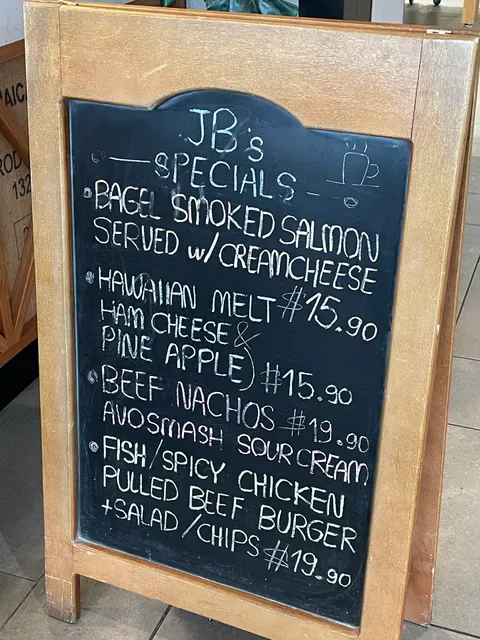 JB's
SPECIALS
BAGEL SMOKED SALMON
SERVED w/CREAMCHEESE
$15.90
HAWAIIAN MELT
HAM CHEESE &
PINE APPLE) $15.90
BEEF NACHOS $19.90
AVOSMASH SOUR CREAM
FISH/SPICY CHICKEN
PULLED BEEF BURGER
+SALAD/CHIPS $19.90
132